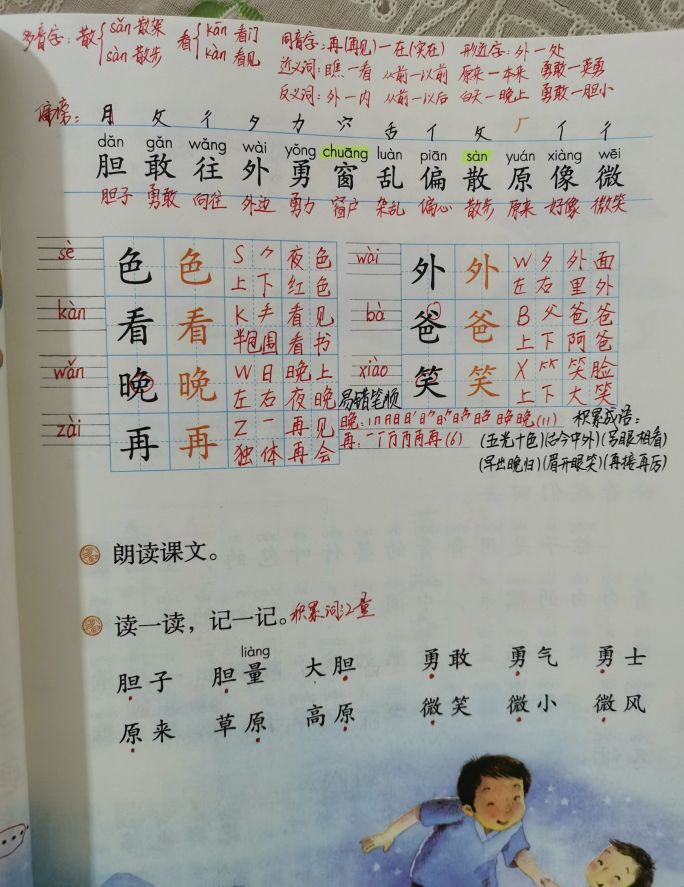 多音字:散{sǎn 散架 看{kān 看门 同音字:再(再见)—在(实在) 形近字:外—处
sàn 散步 kàn 看见 近义词:瞧—看 从前—以前 原来—本来 勇敢—英勇
反义词:外—内 从前—以后 白天—晚上 勇敢—胆小
偏旁: 月 攵 彳 夕 力 穴 舌 亻 攵 厂 亻 彳
dǎn gǎn wǎng wài yǒng chuāng luàn piān sàn yuán xiàng wēi
胆 敢 往 外 勇 窗 乱 偏 散 原 像 微
胆子 勇敢 向往 外边 勇力 窗户 杂乱 偏心 散步 原来 好像 微笑
sè 色 色 S ⺈ 夜色 wài 外 外 W 夕 外面
上下 红色 左右 里外
kàn 看 看 K 手 看见 bà 爸 爸 B 父 爸爸
半包围 看书 上下 阿爸
wǎn 晚 晚 W 日 晚上 xiào 笑 笑 X ⺮ 笑脸
左右 夜晚 上下 大笑
易错笔顺
zài 再 再 Z 一 再见 晚: (11) 积累成语:
独体 再会 再: (6) (五光十色)(古今中外)(另眼相看)
(早出晚归)(眉开眼笑)(再接再厉)
朗读课文。
读一读,记一记。积累词汇量
liàng
胆子 胆量 大胆 勇敢 勇气 勇士
原来 草原 高原 微笑 微小 微风